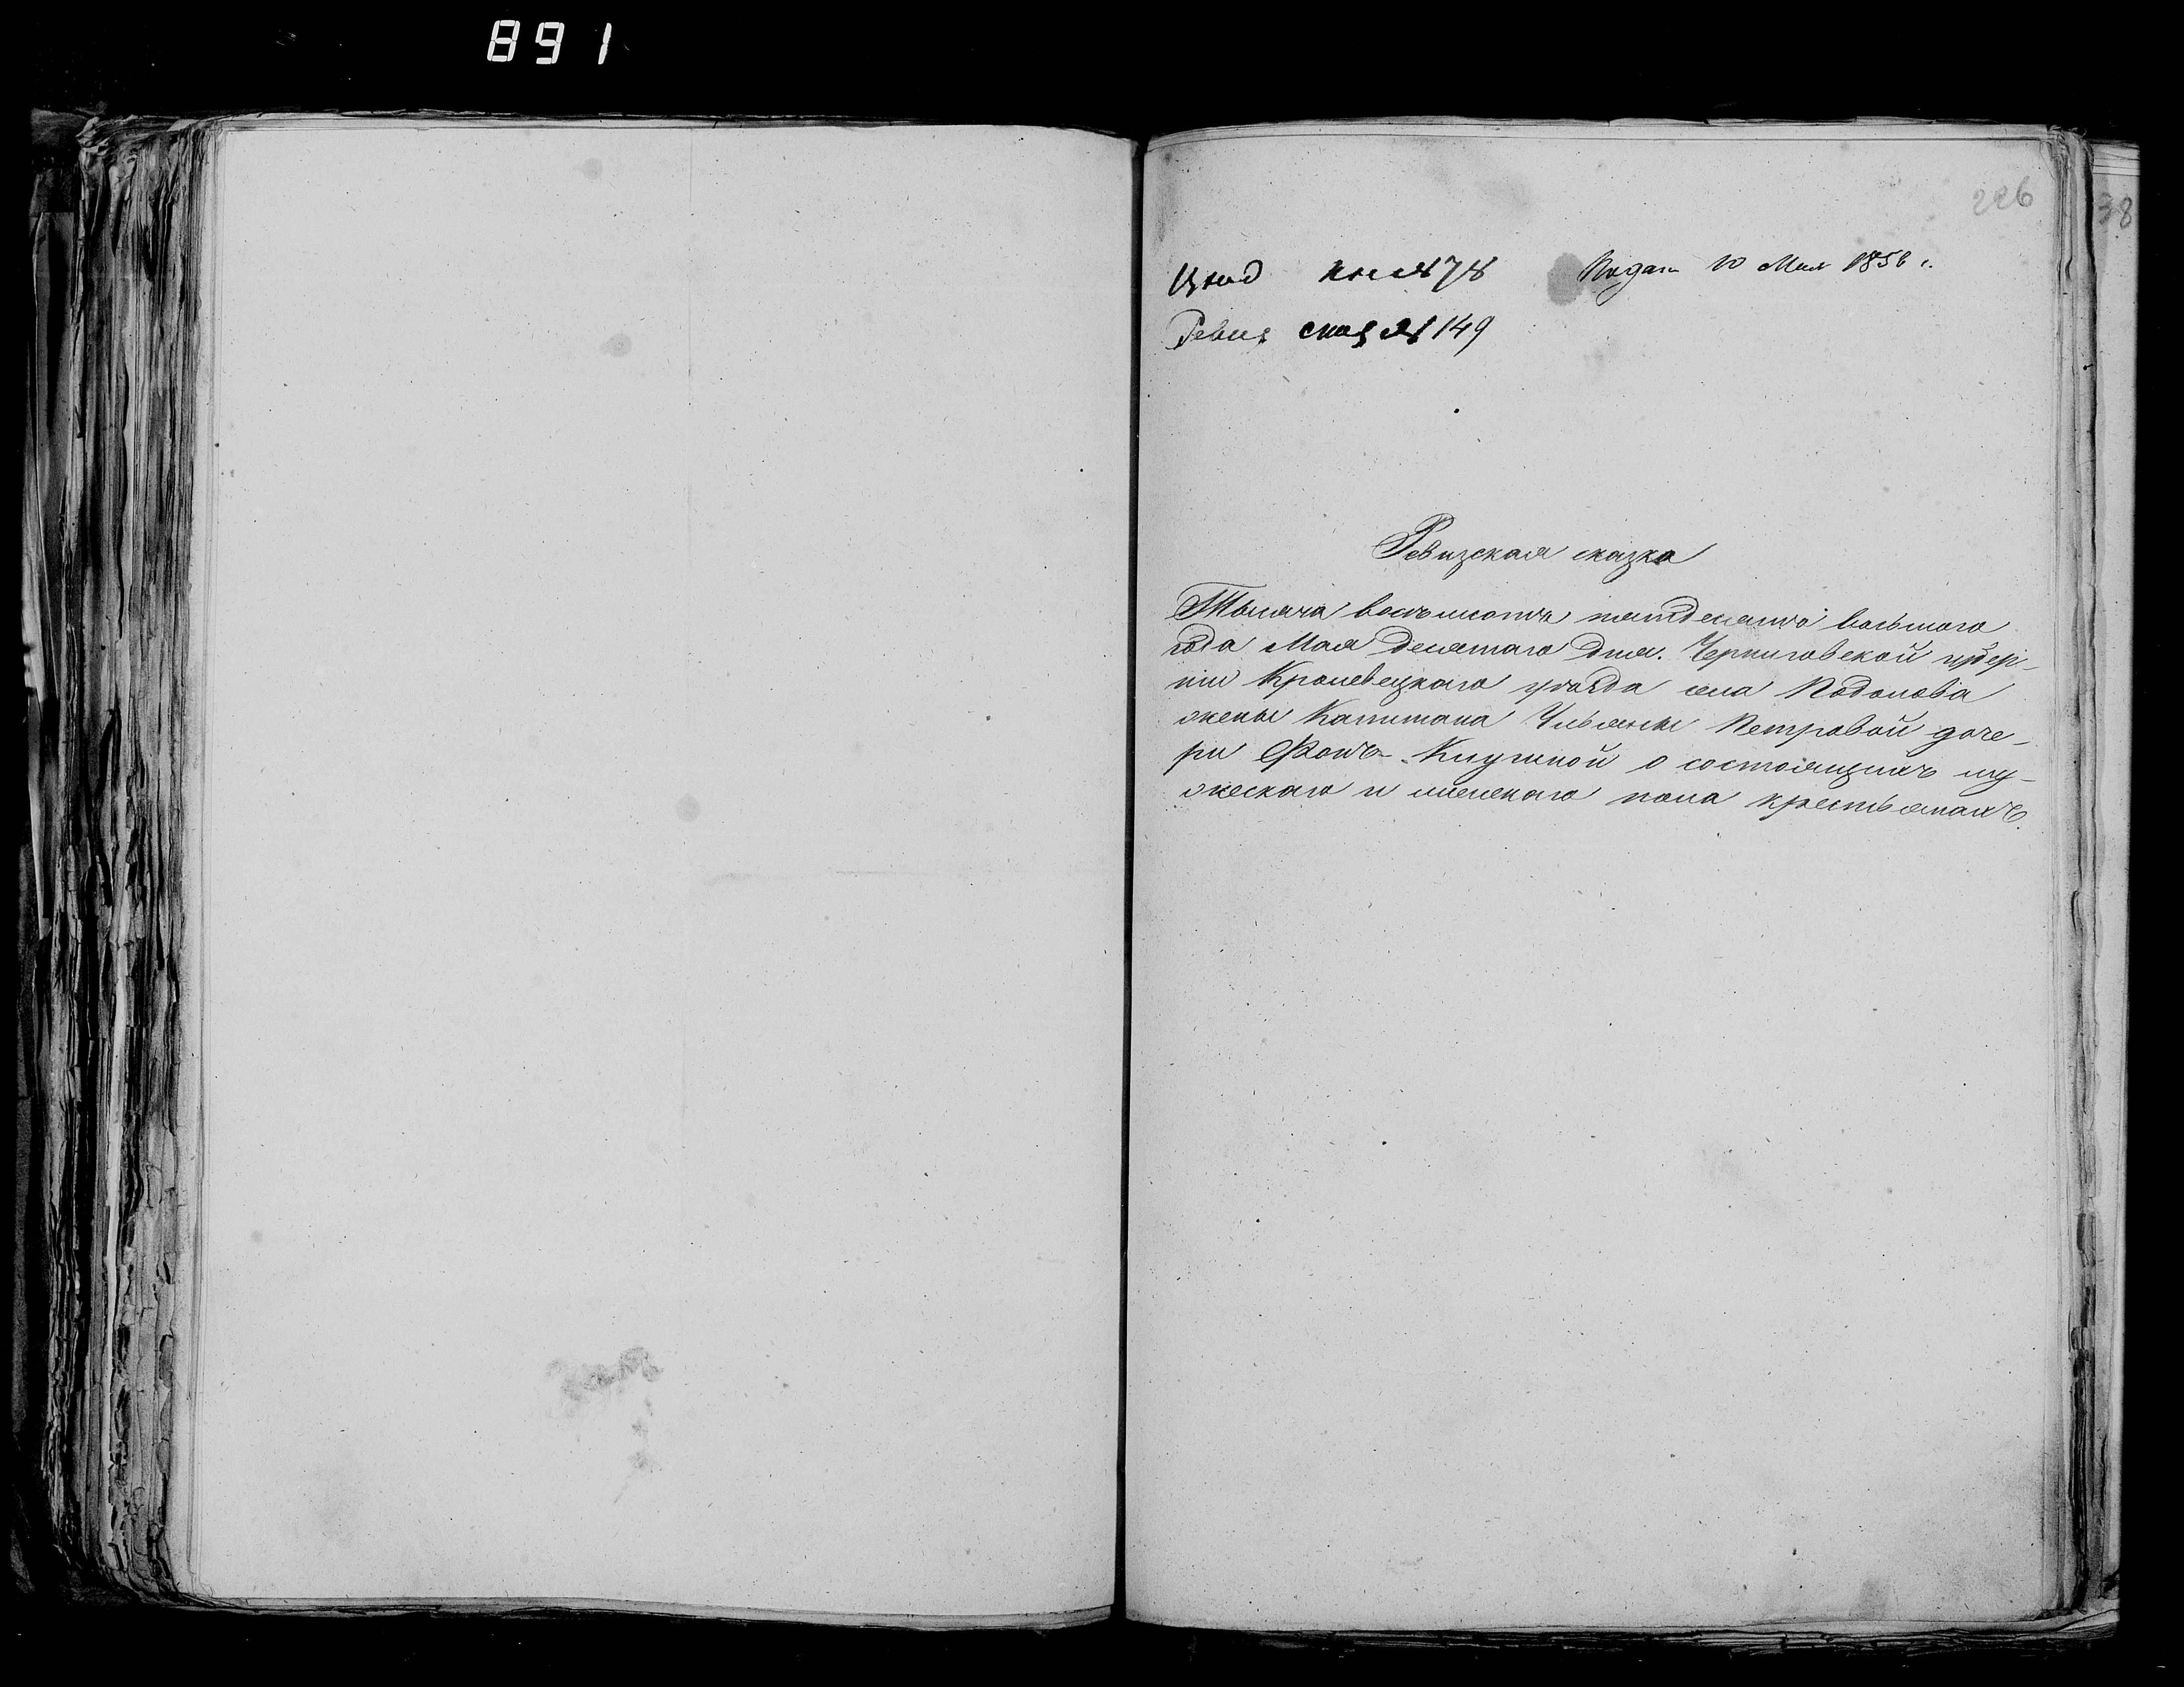 891
226
38
Подана 10 Мая 1858 г.
№ 78
Ревиз. сказ. № 149
Ревизская сказка
Тысяча восемьсотъ пятдесятъ восьмого
года Мая десятаго дня. Черниговской губер-
ніи Кролевецкаго уѣзда села Подолова
жены Капитана Ульяны Петровой доче-
ри Фонъ- о состоящихъ му-
жескаго и женскаго пола крестьянахъ.